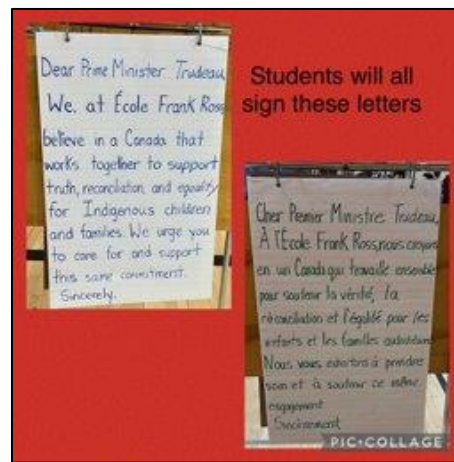 Dear Prime Minister Trudeau,
We, at École Frank Ross,
believe in a Canada that
works together to support
truth, reconciliation, and equality
for Indigenous children
and families. We urge you
to care for and support
this same commitment.
Sincerely,
Students will all
sign these letters
Cher Premier Ministre Trudeau,
À l'École Frank Ross, nous croyons
en un Canada qui travaille ensemble
pour soutenir la vérité, la
réconciliation et l'égalité pour les
enfants et les familles
Nous vous exhortons à prendre
soin et à soutenir ce même
engagement
Sincèrement
PIC•COLLAGE